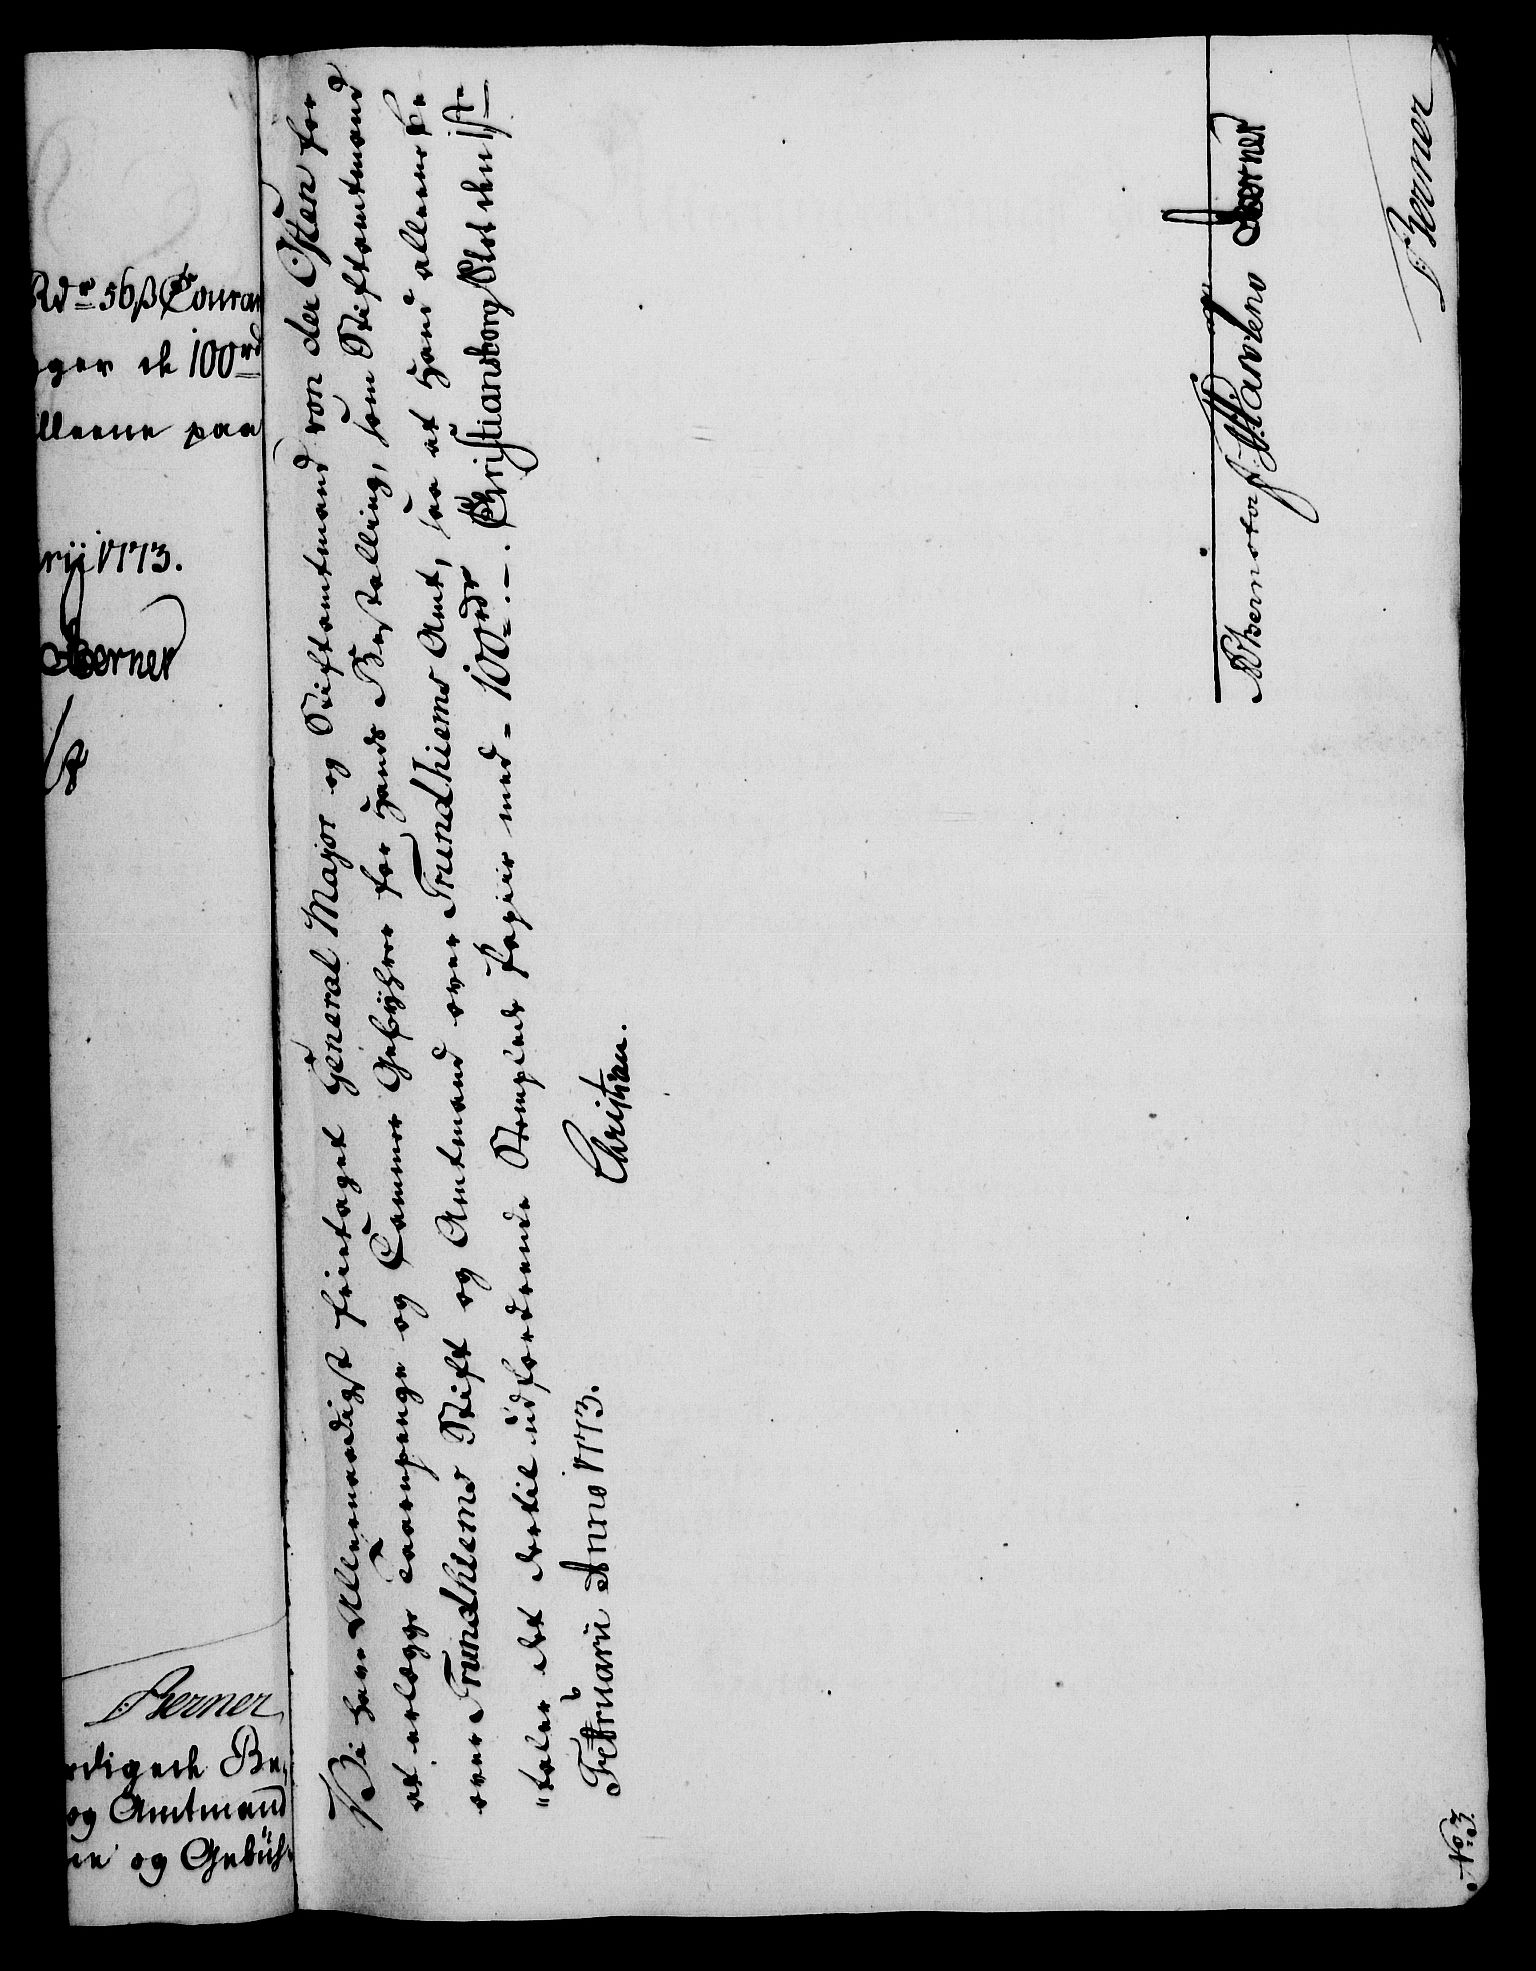 Rdr 56 ß Couran
gger de 100 rd
lleene paa
rij 1773.
Berner
Berner
rdigede Be,
og Amtmand
og Gebüh-
Vi have Allernaadigst fritaget General Major og Stiftamtmand von der Osten for
at erlægge Caarpenge og Cammer Gebÿhrer for Hands Bestalling, som Stiftamtmand
over Trundhiems Stift og Amtmand over Trundhiems Amt, saa at Hand alleene be
"taler det dertil udfordrende Stempled Papier med = 100 rdr = . – . Christiansborg Slot den 1ste
Februarii Anno 1773.
Christian.
Bernstorf Berner
Berner
No 3.